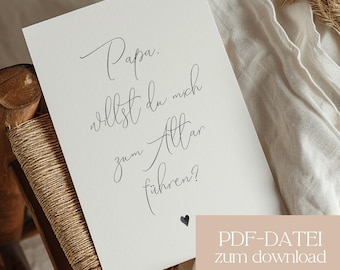 Papa,
willst du mich
zum Altar
führen?
PDF-DATEI
zum download